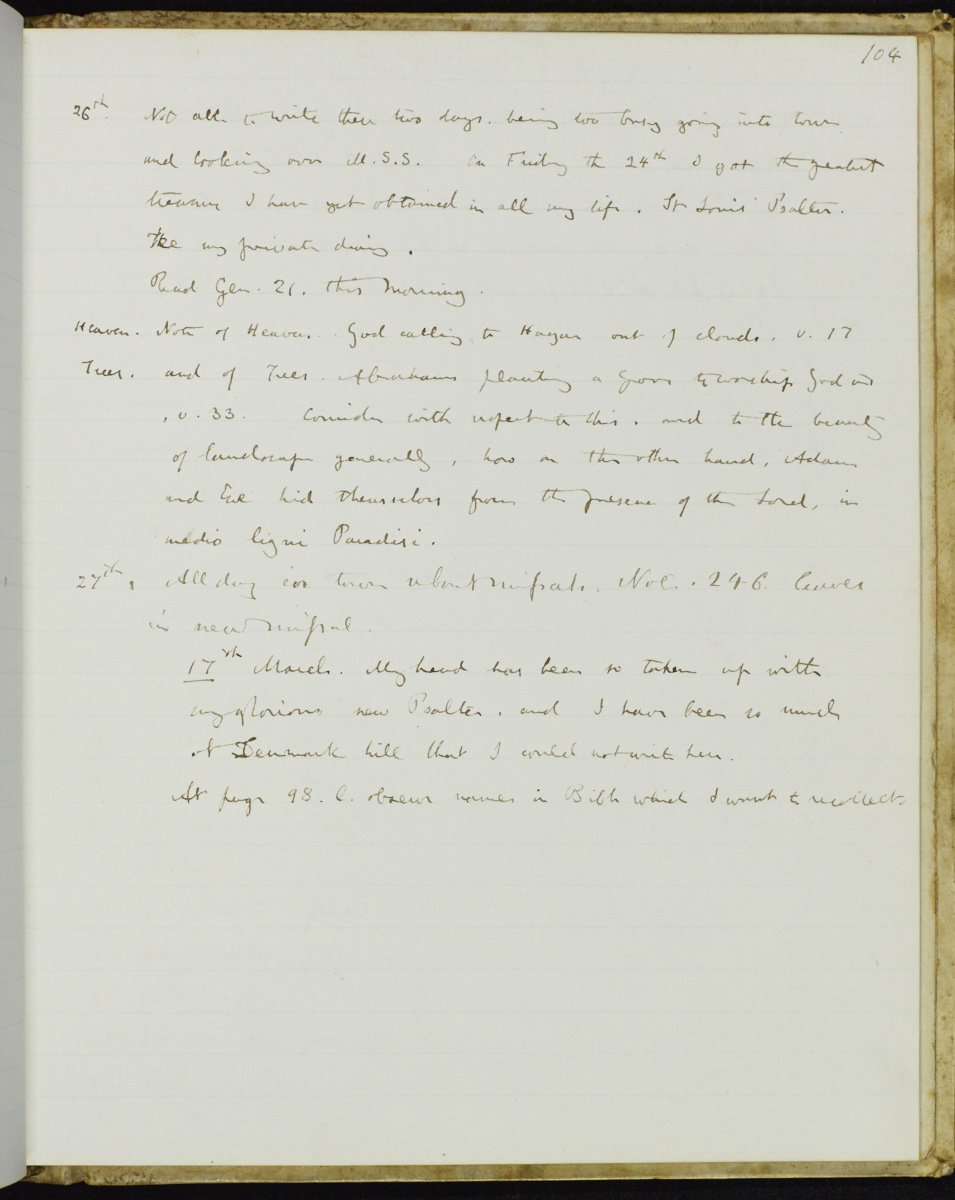 104
26th. Not able to write these two days. being too busy going into town
and looking over M.S.S. On Friday the 24th I got the greatest
treasure I have yet obtained in all my life. St Louis' Psalter.
See my private diary.
Read Gen. 21. this morning.
Heaven. Note of Heaven. God calling to Hagar out of clouds. v. 17
Trees. and of Trees. Abrahams planting a grove to worship God in
, v. 33. Consider with respect to this. and to the beauty
of landscape generally, how on the other hand, Adam
and Eve hid themselves from the presence of the Lord, in
medio ligni Paradisi.
27th, All day in town about missals. Note. 246. leaves
in new missal.
17th March. My head has been so taken up with
my glorious new Psalter. and I have been so much
at Denmark hill that I could not write here.
At page 98. l. observe names in Bible which I want to recollect